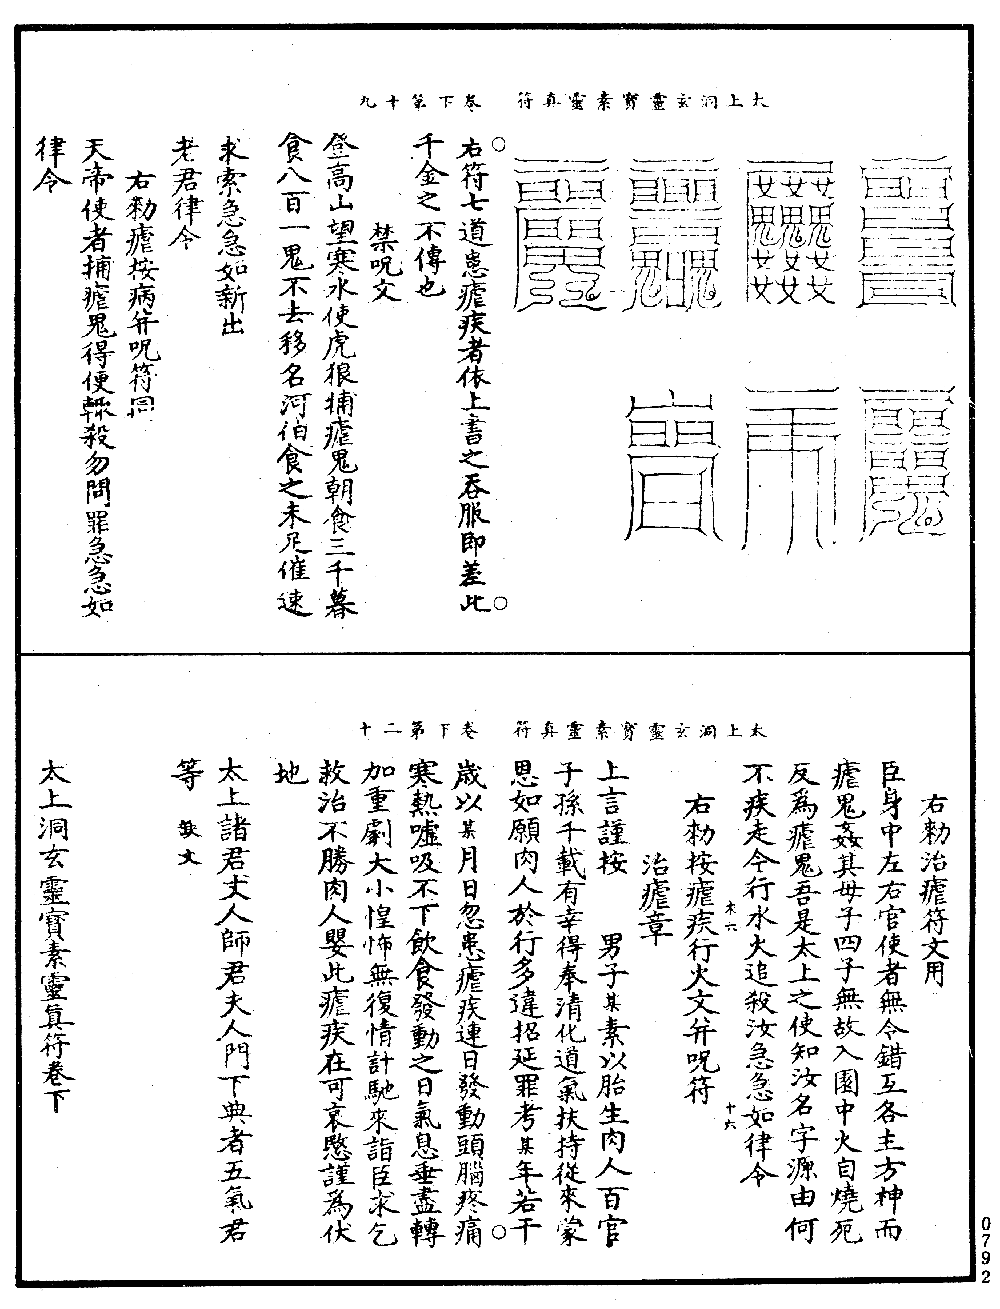 太上洞玄靈寶素靈真符　卷下第十九
右符七道患瘧疾者依上書之吞服即差此
千金之不傳也
禁呪文
登高山望寒水使虎狼捕瘧鬼朝食三千暮
食八百一鬼不去移名河伯食之未足催速
求索急急如新出
老君律令
右勑瘧按病并呪符同
天帝使者捕瘧鬼得便斬殺勿問罪急急如
律令
太上洞玄靈寶素靈真符　卷下第二十
右勑治瘧符文用
臣身中左右官使者無令錯互各主方神而
瘧鬼姦其母子四子無故入園中火自燒死
反為瘧鬼吾是太上之使知汝名字源由何
不疾走令行水火追殺汝急急如律令
右勑按瘧疾行火文并呪符
治瘧章
上言謹按　男子某素以胎生肉人百官
子孫千載有幸得奉清化道氣扶持從來蒙
恩如願肉人於行多違招延罪考某年若干
歲以某月日忽患瘧疾連日發動頭腦疼痛
寒熱噓吸不下飲食發動之日氣息垂盡轉
加重劇大小惶怖無復情計馳來詣臣求乞
救治不勝肉人嬰此瘧疾在可哀愍謹為伏
地
太上諸君丈人師君夫人門下典者五氣君
等　缺文
太上洞玄靈寶素靈真符卷下
0792